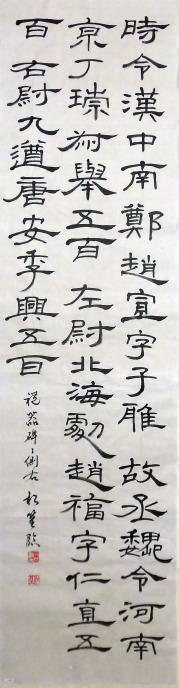 時令漢中南鄭趙宣字子雕故丞魏令河南
京丁琮叔舉五百左尉北海劇趙福字仁直五
百右尉九道唐安季興五百
禮器碑側右
臨